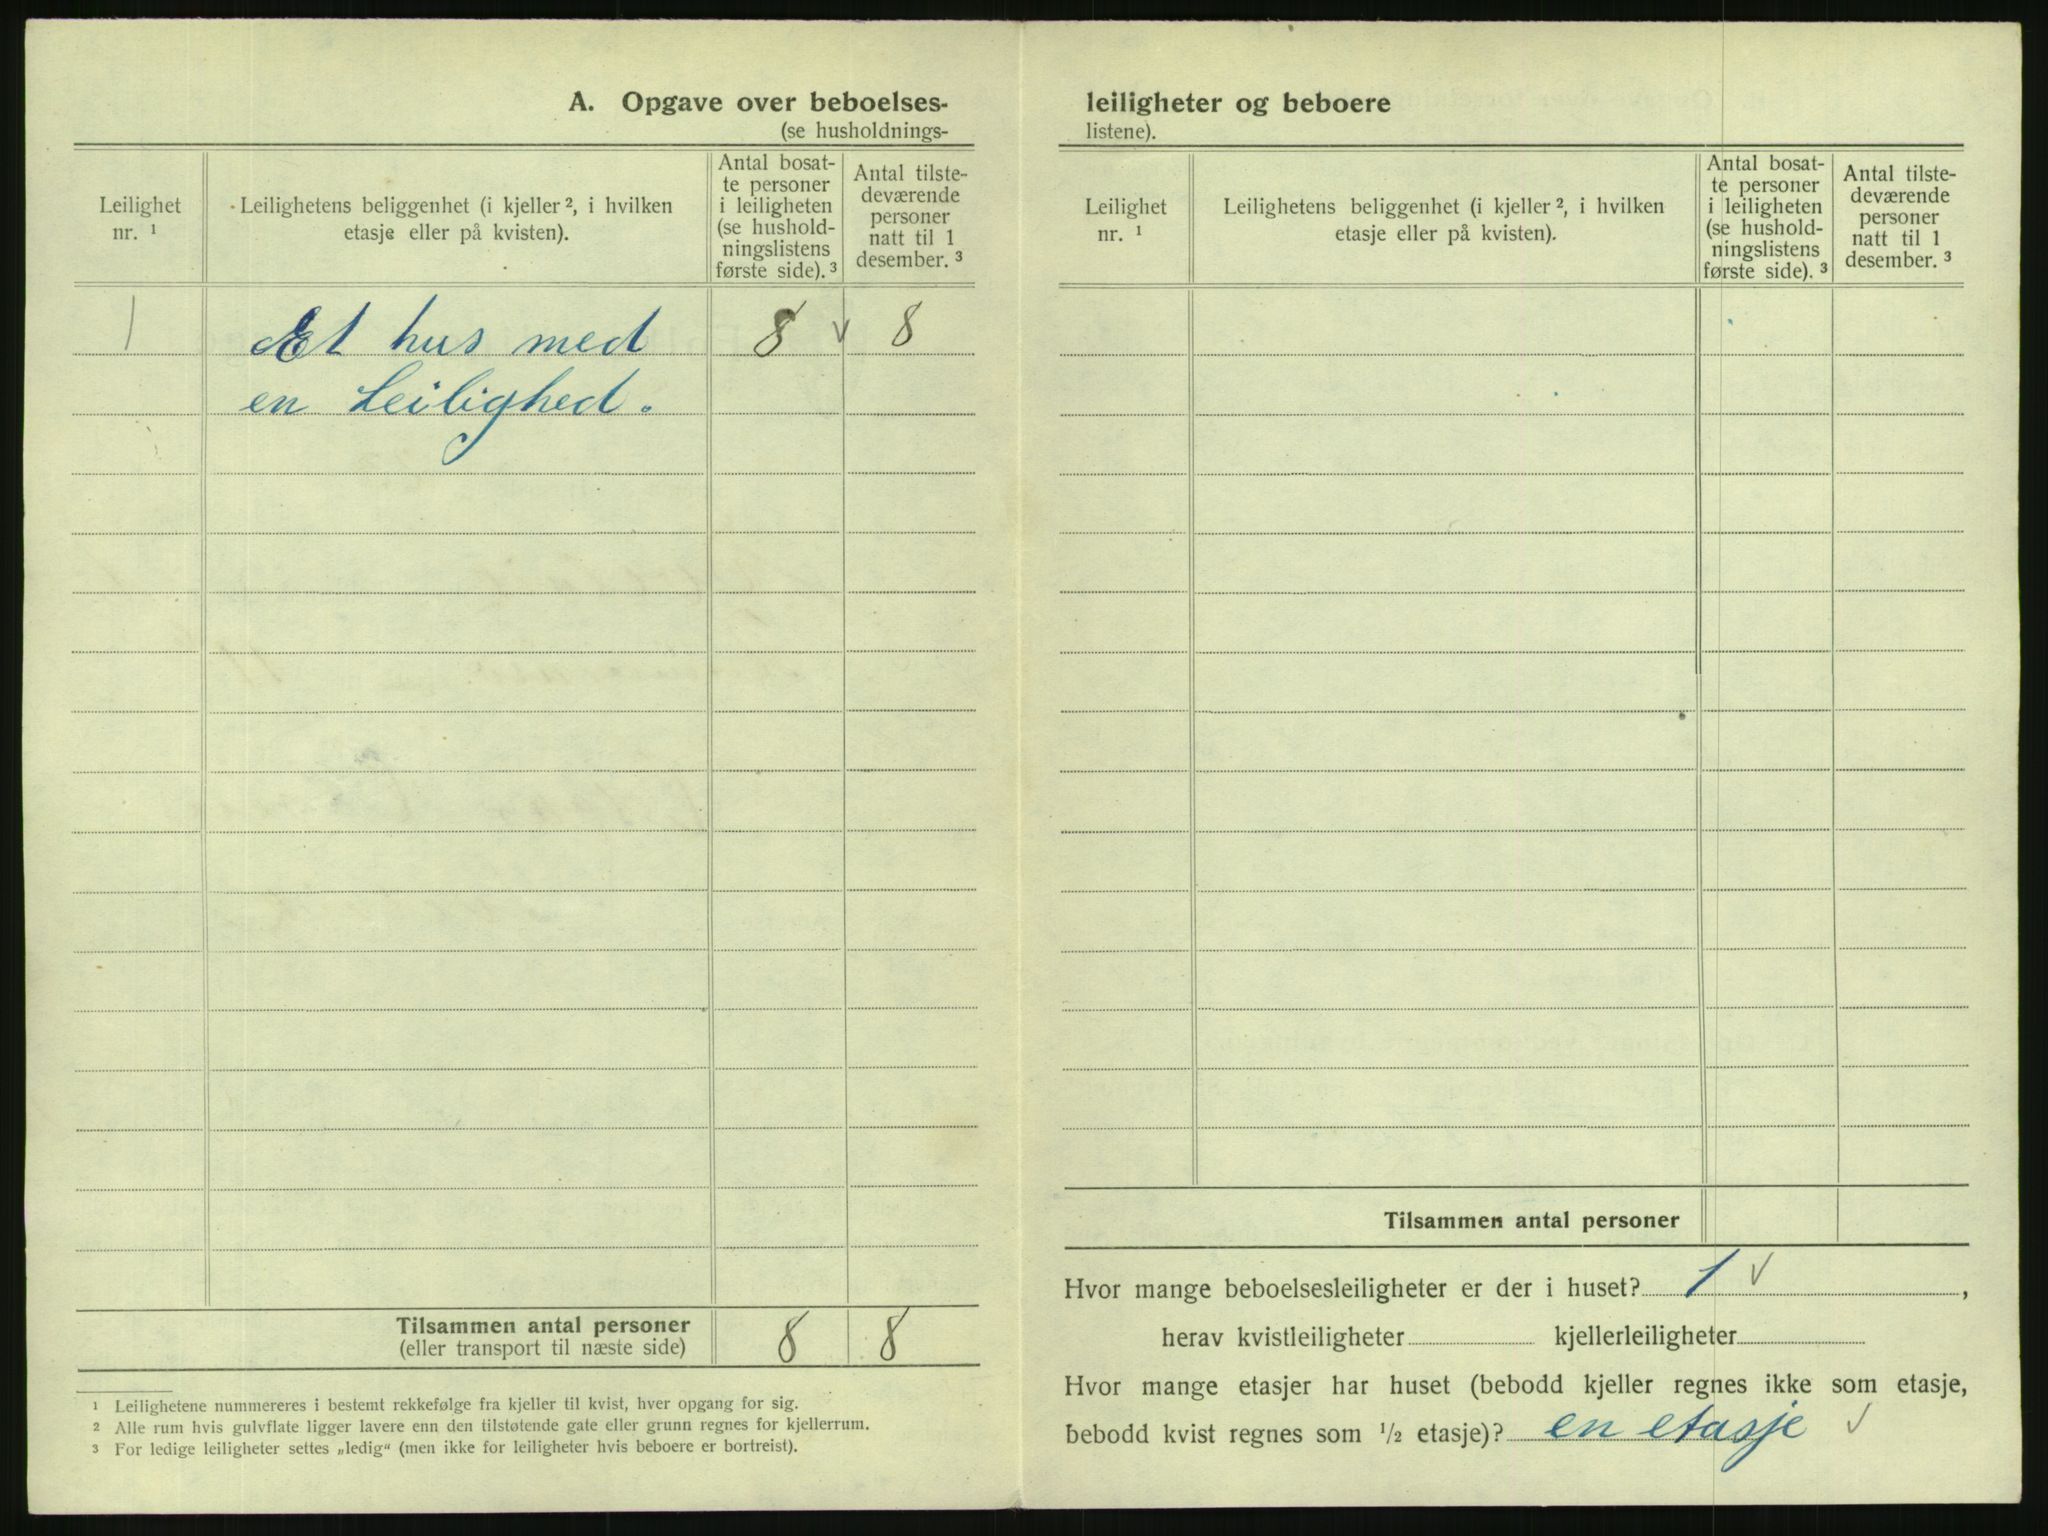 A. Opgave over beboelses-
(se husholdnings-
Leilighet
nr. ¹
Leilighetens beliggenhet (i kjeller ², i hvilken
etasje eller på kvisten).
Antal bosat-
te personer
i leiligheten
(se hushold-
ningslistens
første side). ³
Antal tilste-
deværende
personer
natt til 1
desember. ³
1 Et hus med 8 √ 8
en Leilighed.
Tilsammen antal personer
(eller transport til næste side)
8 8
¹ Leilighetene nummereres i bestemt rekkefølge fra kjeller til kvist, hver opgang for sig.
² Alle rum hvis gulvflate ligger lavere enn den tilstøtende gate eller grunn regnes for kjellerrum.
³ For ledige leiligheter settes „ledig“ (men ikke for leiligheter hvis beboere er bortreist).
leiligheter og beboere
listene).
Leilighet
nr. ¹
Leilighetens beliggenhet (i kjeller ², i hvilken
etasje eller på kvisten).
Antal bosat-
te personer
i leiligheten
(se hushold-
ningslistens
første side). ³
Antal tilste-
deværende
personer
natt til 1
desember. ³
Tilsammen antal personer
Hvor mange beboelsesleiligheter er der i huset? 1 √ ,
herav kvistleiligheter kjellerleiligheter
Hvor mange etasjer har huset (bebodd kjeller regnes ikke som etasje,
bebodd kvist regnes som ½ etasje)? en etasje √